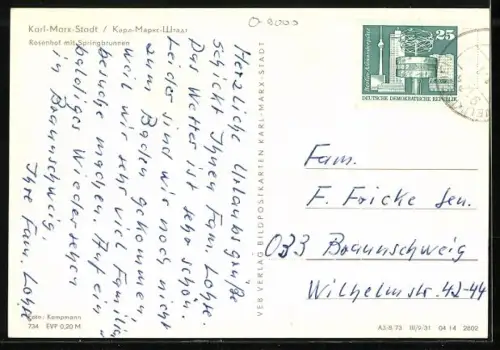 Karl-Marx-Stadt / Карл-Маркс-Штадт
Rosenhof mit Springbrunnen
Herzliche Urlaubsgrüße
schickt Ihnen Fam. Lohse.
Das Wetter ist sehr schön.
Leider sind wir noch nicht
zum Baden gekommen,
weil wir sehr viel Familien
besuche machen. Auf ein
baldiges Wiedersehen
in Braunschweig.
Ihre Fam. Lohse
Foto: Kempmann
734 EVP 0,20 M
VEB VERLAG BILDPOSTKARTEN KARL-MARX-STADT
25
DEUTSCHE DEMOKRATISCHE REPUBLIK
Fam.
F. Fricke sen.
033 Braunschweig
Wilhelmstr. 42-44
A3/B/73 III/9/31 04 14 2802